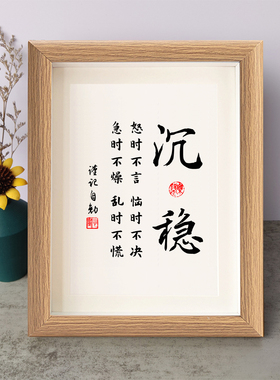 沉稳
怒时不言 恼时不决
急时不燥 乱时不慌
谨记自勉